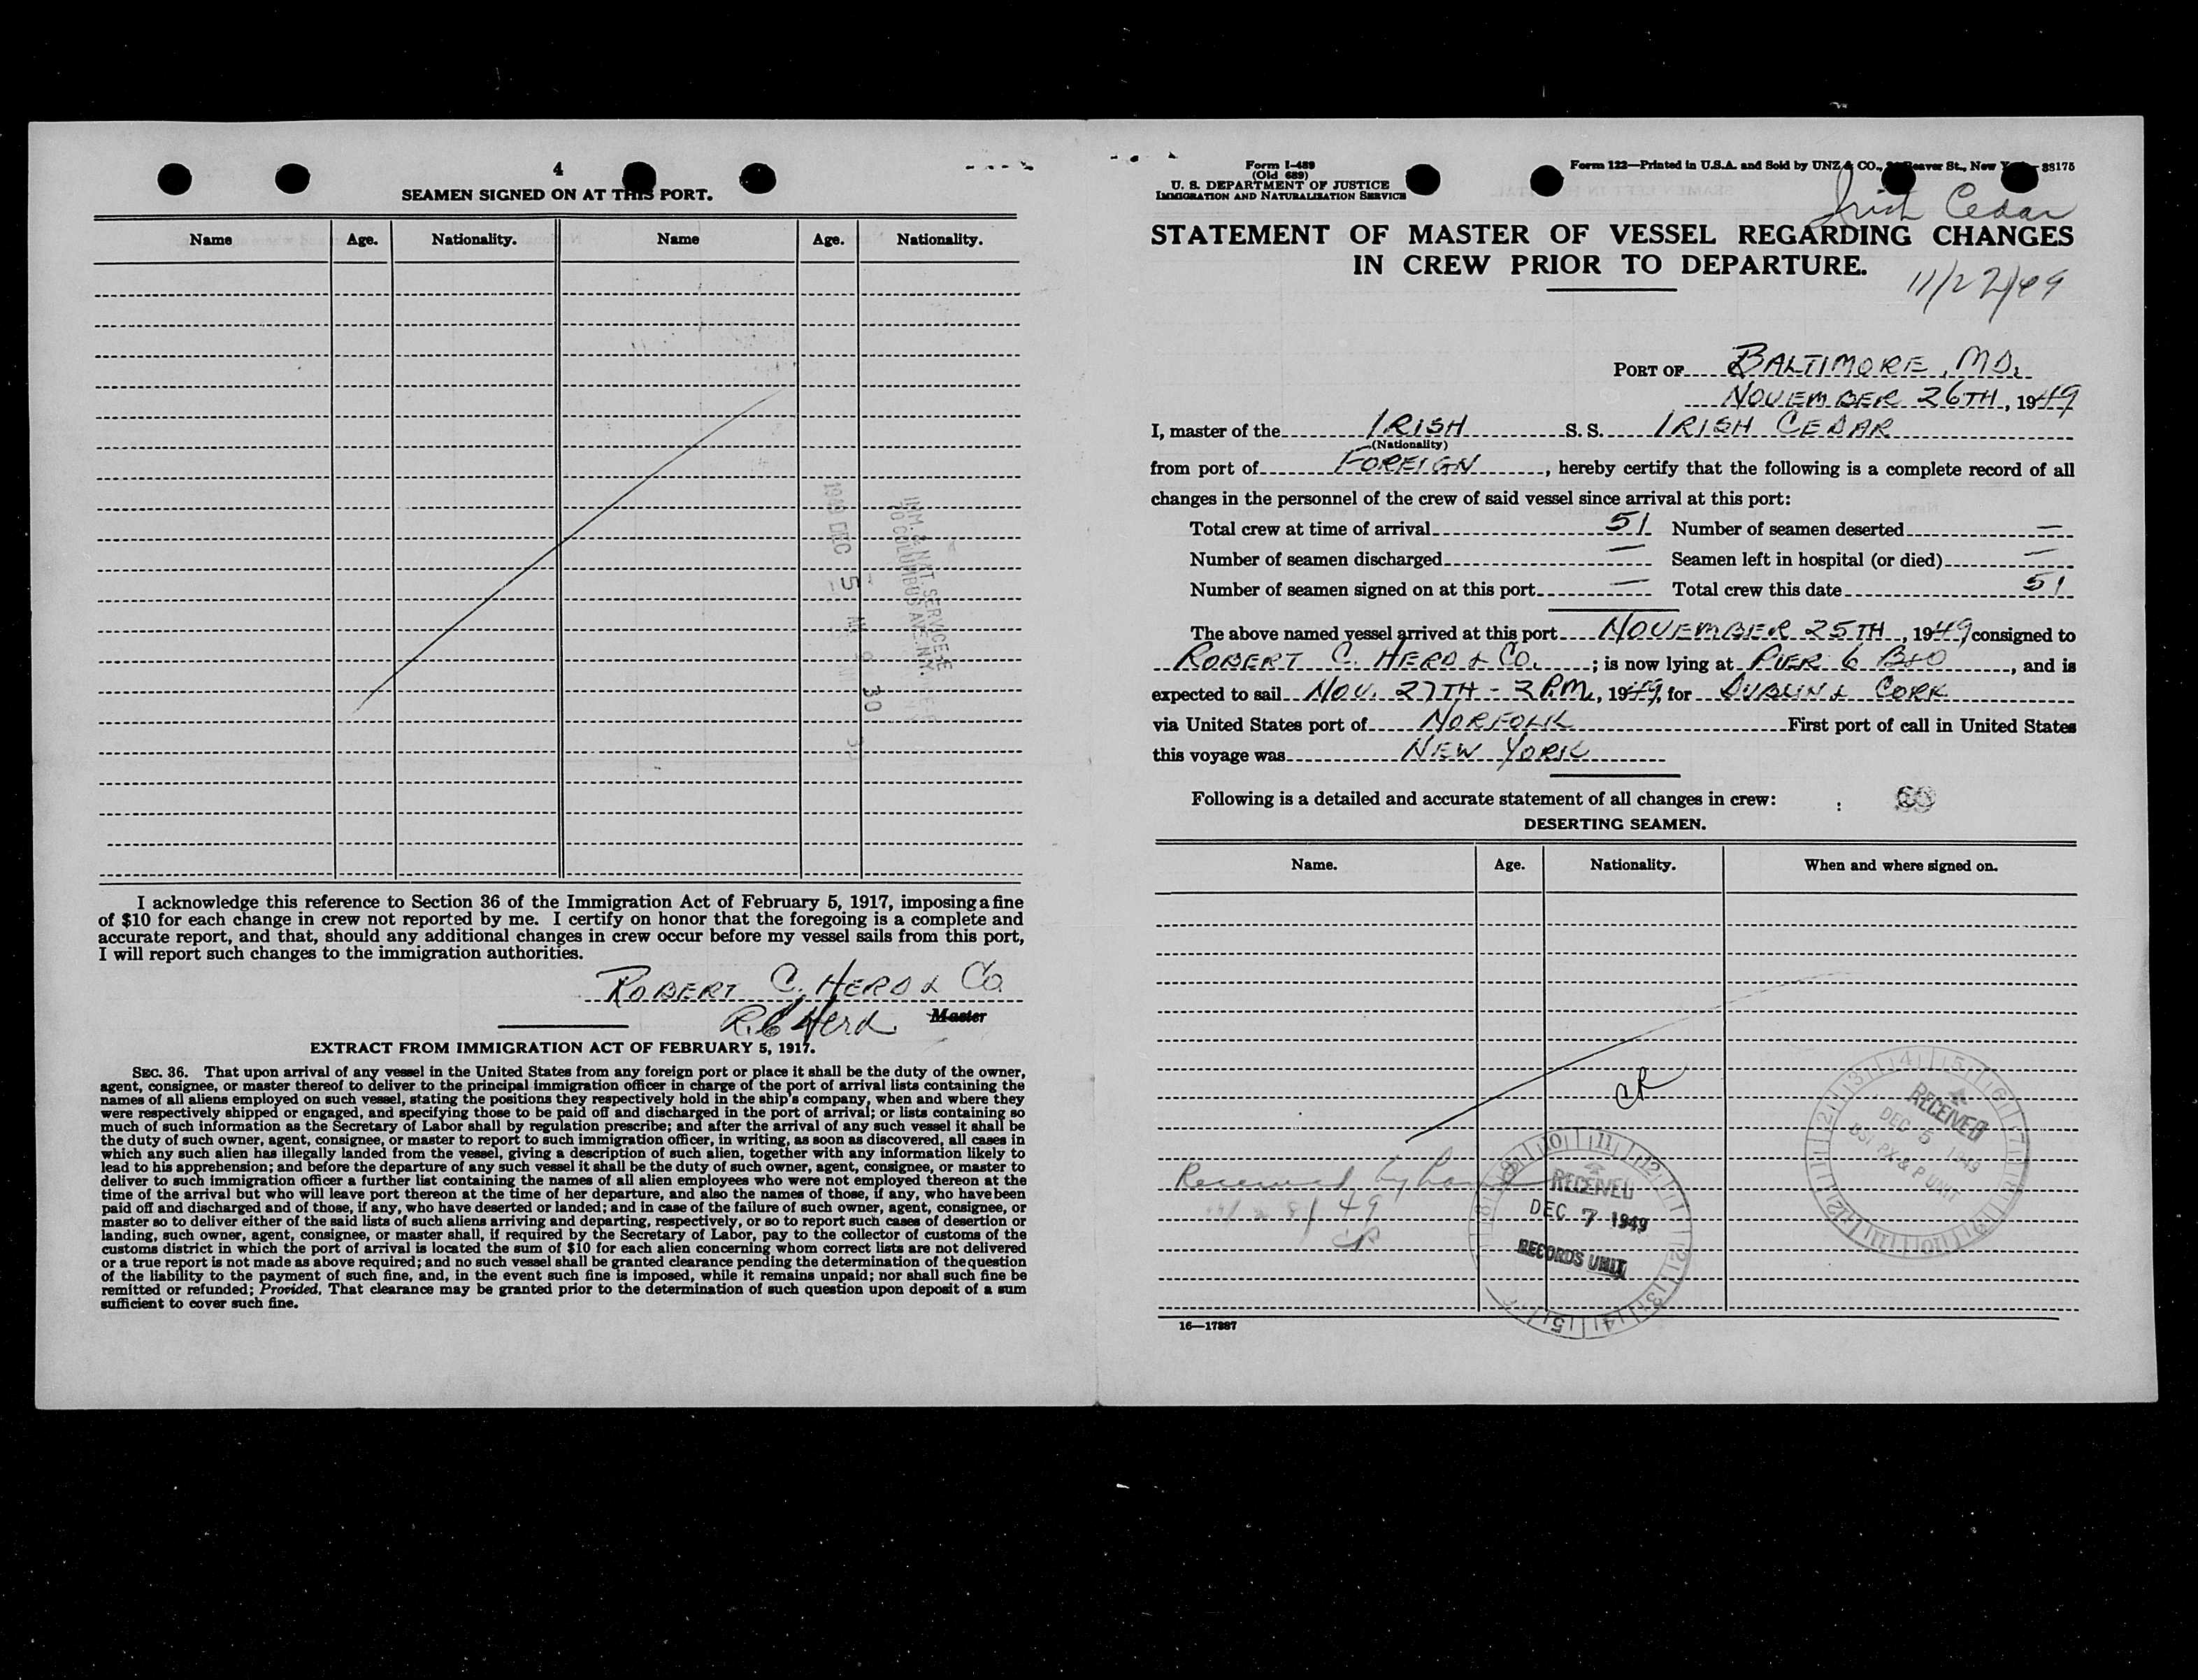 4
SEAMEN SIGNED ON AT THIS PORT.
Name Age. Nationality. Name Age. Nationality.
1949 DEC 5 9 30
IMM. & NAT. SERVICE
70 COLUMBUS AVE. N.Y.
I acknowledge this reference to Section 36 of the Immigration Act of February 5, 1917, imposing a fine
of $10 for each change in crew not reported by me. I certify on honor that the foregoing is a complete and
accurate report, and that, should any additional changes in crew occur before my vessel sails from this port,
I will report such changes to the immigration authorities.
ROBERT C. HERD & Co
R.C Herd Master
EXTRACT FROM IMMIGRATION ACT OF FEBRUARY 5, 1917.
SEC. 36. That upon arrival of any vessel in the United States from any foreign port or place it shall be the duty of the owner,
agent, consignee, or master thereof to deliver to the principal immigration officer in charge of the port of arrival lists containing the
names of all aliens employed on such vessel, stating the positions they respectively hold in the ship's company, when and where they
were respectively shipped or engaged, and specifying those to be paid off and discharged in the port of arrival; or lists containing so
much of such information as the Secretary of Labor shall by regulation prescribe; and after the arrival of any such vessel it shall be
the duty of such owner, agent, consignee, or master to report to such immigration officer, in writing, as soon as discovered, all cases in
which any such alien has illegally landed from the vessel, giving a description of such alien, together with any information likely to
lead to his apprehension; and before the departure of any such vessel it shall be the duty of such owner, agent, consignee, or master to
deliver to such immigration officer a further list containing the names of all alien employees who were not employed thereon at the
time of the arrival but who will leave port thereon at the time of her departure, and also the names of those, if any, who have been
paid off and discharged and of those, if any, who have deserted or landed; and in case of the failure of such owner, agent, consignee, or
master so to deliver either of the said lists of such aliens arriving and departing, respectively, or so to report such cases of desertion or
landing, such owner, agent, consignee, or master shall, if required by the Secretary of Labor, pay to the collector of customs of the
customs district in which the port of arrival is located the sum of $10 for each alien concerning whom correct lists are not delivered
or a true report is not made as above required; and no such vessel shall be granted clearance pending the determination of the question
of the liability to the payment of such fine, and, in the event such fine is imposed, while it remains unpaid; nor shall such fine be
remitted or refunded; Provided, That clearance may be granted prior to the determination of such question upon deposit of a sum
sufficient to cover such fine.
Form I-489
(Old 689)
U. S. DEPARTMENT OF JUSTICE
IMMIGRATION AND NATURALIZATION SERVICE
Form 122—Printed in U.S.A. and Sold by UNZ & CO., Beaver St., New Y 38175
Irish Cedar
STATEMENT OF MASTER OF VESSEL REGARDING CHANGES
IN CREW PRIOR TO DEPARTURE.
11/22/49
PORT OF BALTIMORE, MD.
NOVEMBER 26TH, 1949
I, master of the IRISH S. S. IRISH CEDAR
(Nationality)
from port of FOREIGN, hereby certify that the following is a complete record of all
changes in the personnel of the crew of said vessel since arrival at this port:
Total crew at time of arrival 51 Number of seamen deserted —
Number of seamen discharged — Seamen left in hospital (or died) —
Number of seamen signed on at this port — Total crew this date 51
The above named vessel arrived at this port NOVEMBER 25TH, 1949, consigned to
ROBERT C. HERD & CO. ; is now lying at PIER 6 B&O, and is
expected to sail NOV. 27TH - 2 P.M., 1949, for DUBLIN & CORK
via United States port of NORFOLK First port of call in United States
this voyage was NEW YORK
Following is a detailed and accurate statement of all changes in crew:
DESERTING SEAMEN.
Name. Age. Nationality. When and where signed on.
CR
RECEIVED
DEC 5 1949
PX & P UNIT
Received by
49
CR
RECEIVED
DEC 7 1949
RECORDS UNIT
16—17887